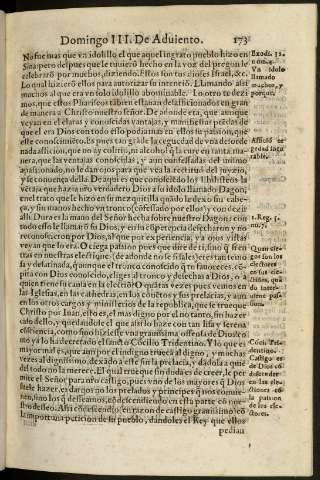 Domingo III. De Aduiento. 173
No fue mas que vn idolillo el que aquel ingrato pueblo hizo en
Sina, pero despues que le vuieron hecho en la voz del pregon le
celebraron por muchos, diziendo. Estos son tus dioses Israel, &c.
Lo qual hizieron ellos para autorizar su intento. Llamando assi
muchos al que era vn solo idolillo abominable. Lo otro te dezi
mos, que estos Phariseos tambien estauan desaficionados en gran
de manera a Christo nuestro señor. De adonde era, que aunque
veyan en el claras y conocidas ventajas, y manifiestas señales de
que el era Dios con todo esso podia mas en ellos su passion, que
este conocimiento. Es pues tan grande la ceguedad de vna desorde
nada afficion, que no ay colirio, ni alcohol q̃ la cure en tanta ma-
nera, que las ventajas conocidas, y aun confessadas del animo
apassionado, no le dan ojos para que vea la rectitud del juyzio,
y se conuença della. De aqui es que conociendo los Philisteos la
ventaja que hazia nr̃o verdadero Dios a su idolo llamado Dagon
en el trato que le hizo en su mezquita quando le dexo sin cabe-
ça, y sin manos hecho vn tronco (confessado por ellos) y con dezir
alli. Dura es la mano del Señor hecha sobre nuestro Dagon: con
todo esso le llamarõ su Dios, y en su cõpetencia desecharon y no
reconocieron por Dios, al que por experiencia, y a ojos vistas
veyan que lo era. O ciega passion pues que dire de ti, sino q̃ si en
tras en nuestras electiones (de adonde no se si sales) eres tan tenaz
y desatinada, que aun que el tronco conocido q̃ tu fauoreces, cõ
pita con Dios conocido, eliges al tronco y desechas a Dios, o a
quien tiene su causa en la electiõ. O quãtas vezes pues vemos en
las Iglesias, en las cathedras, en los cõuẽtos y sus prelacias, y aun
en los otros cargos y ministerios de la republica, que se trueque
Christo por Iuan, esto es, el mas digno por el no tanto, sin hazer
caso dello, y quedandose el que assi lo haze con tan lisa y serena
cõsciencia, como sino hiziesse vna grauissima offensa de Dios: co
mo ya lo ha decretado el sancto Cõcilio Tridentino. Y lo que es
mayor mal es, que aun por el indigno trueca al digno, y muchas
vezes al dignissimo, dexado a este sin la prelacia, y dadola a que
del todo no la merere. El qual trueque sin duda es de creer, le per
mite el Señor para nr̃o castigo, pues vno de los mayores q̃ Dios
suele hazer, es darnos no los prelados y principes q̃ nos conuie-
nen, sino los q̃ desseamos, cõdescendiendo en esta parte cõ nue-
stro desseo. Assi cõdescendio, en razon de castigo grauissimo cõ
la importuna peticion de su pueblo, dandoles el Rey que ellos
pedian
Exodi. 32.
num. 4.
Vn idolo
llamado
muchos, y
porque.
Affició de
gra̅d incu
rable.
1. Reg. 5.
nu. 7.
Cõci. Tri-
dentino.
Castigo es
de Dios cõ
descender
en las ele-
ctiones cõ
la passion
de los ele-
ctores.